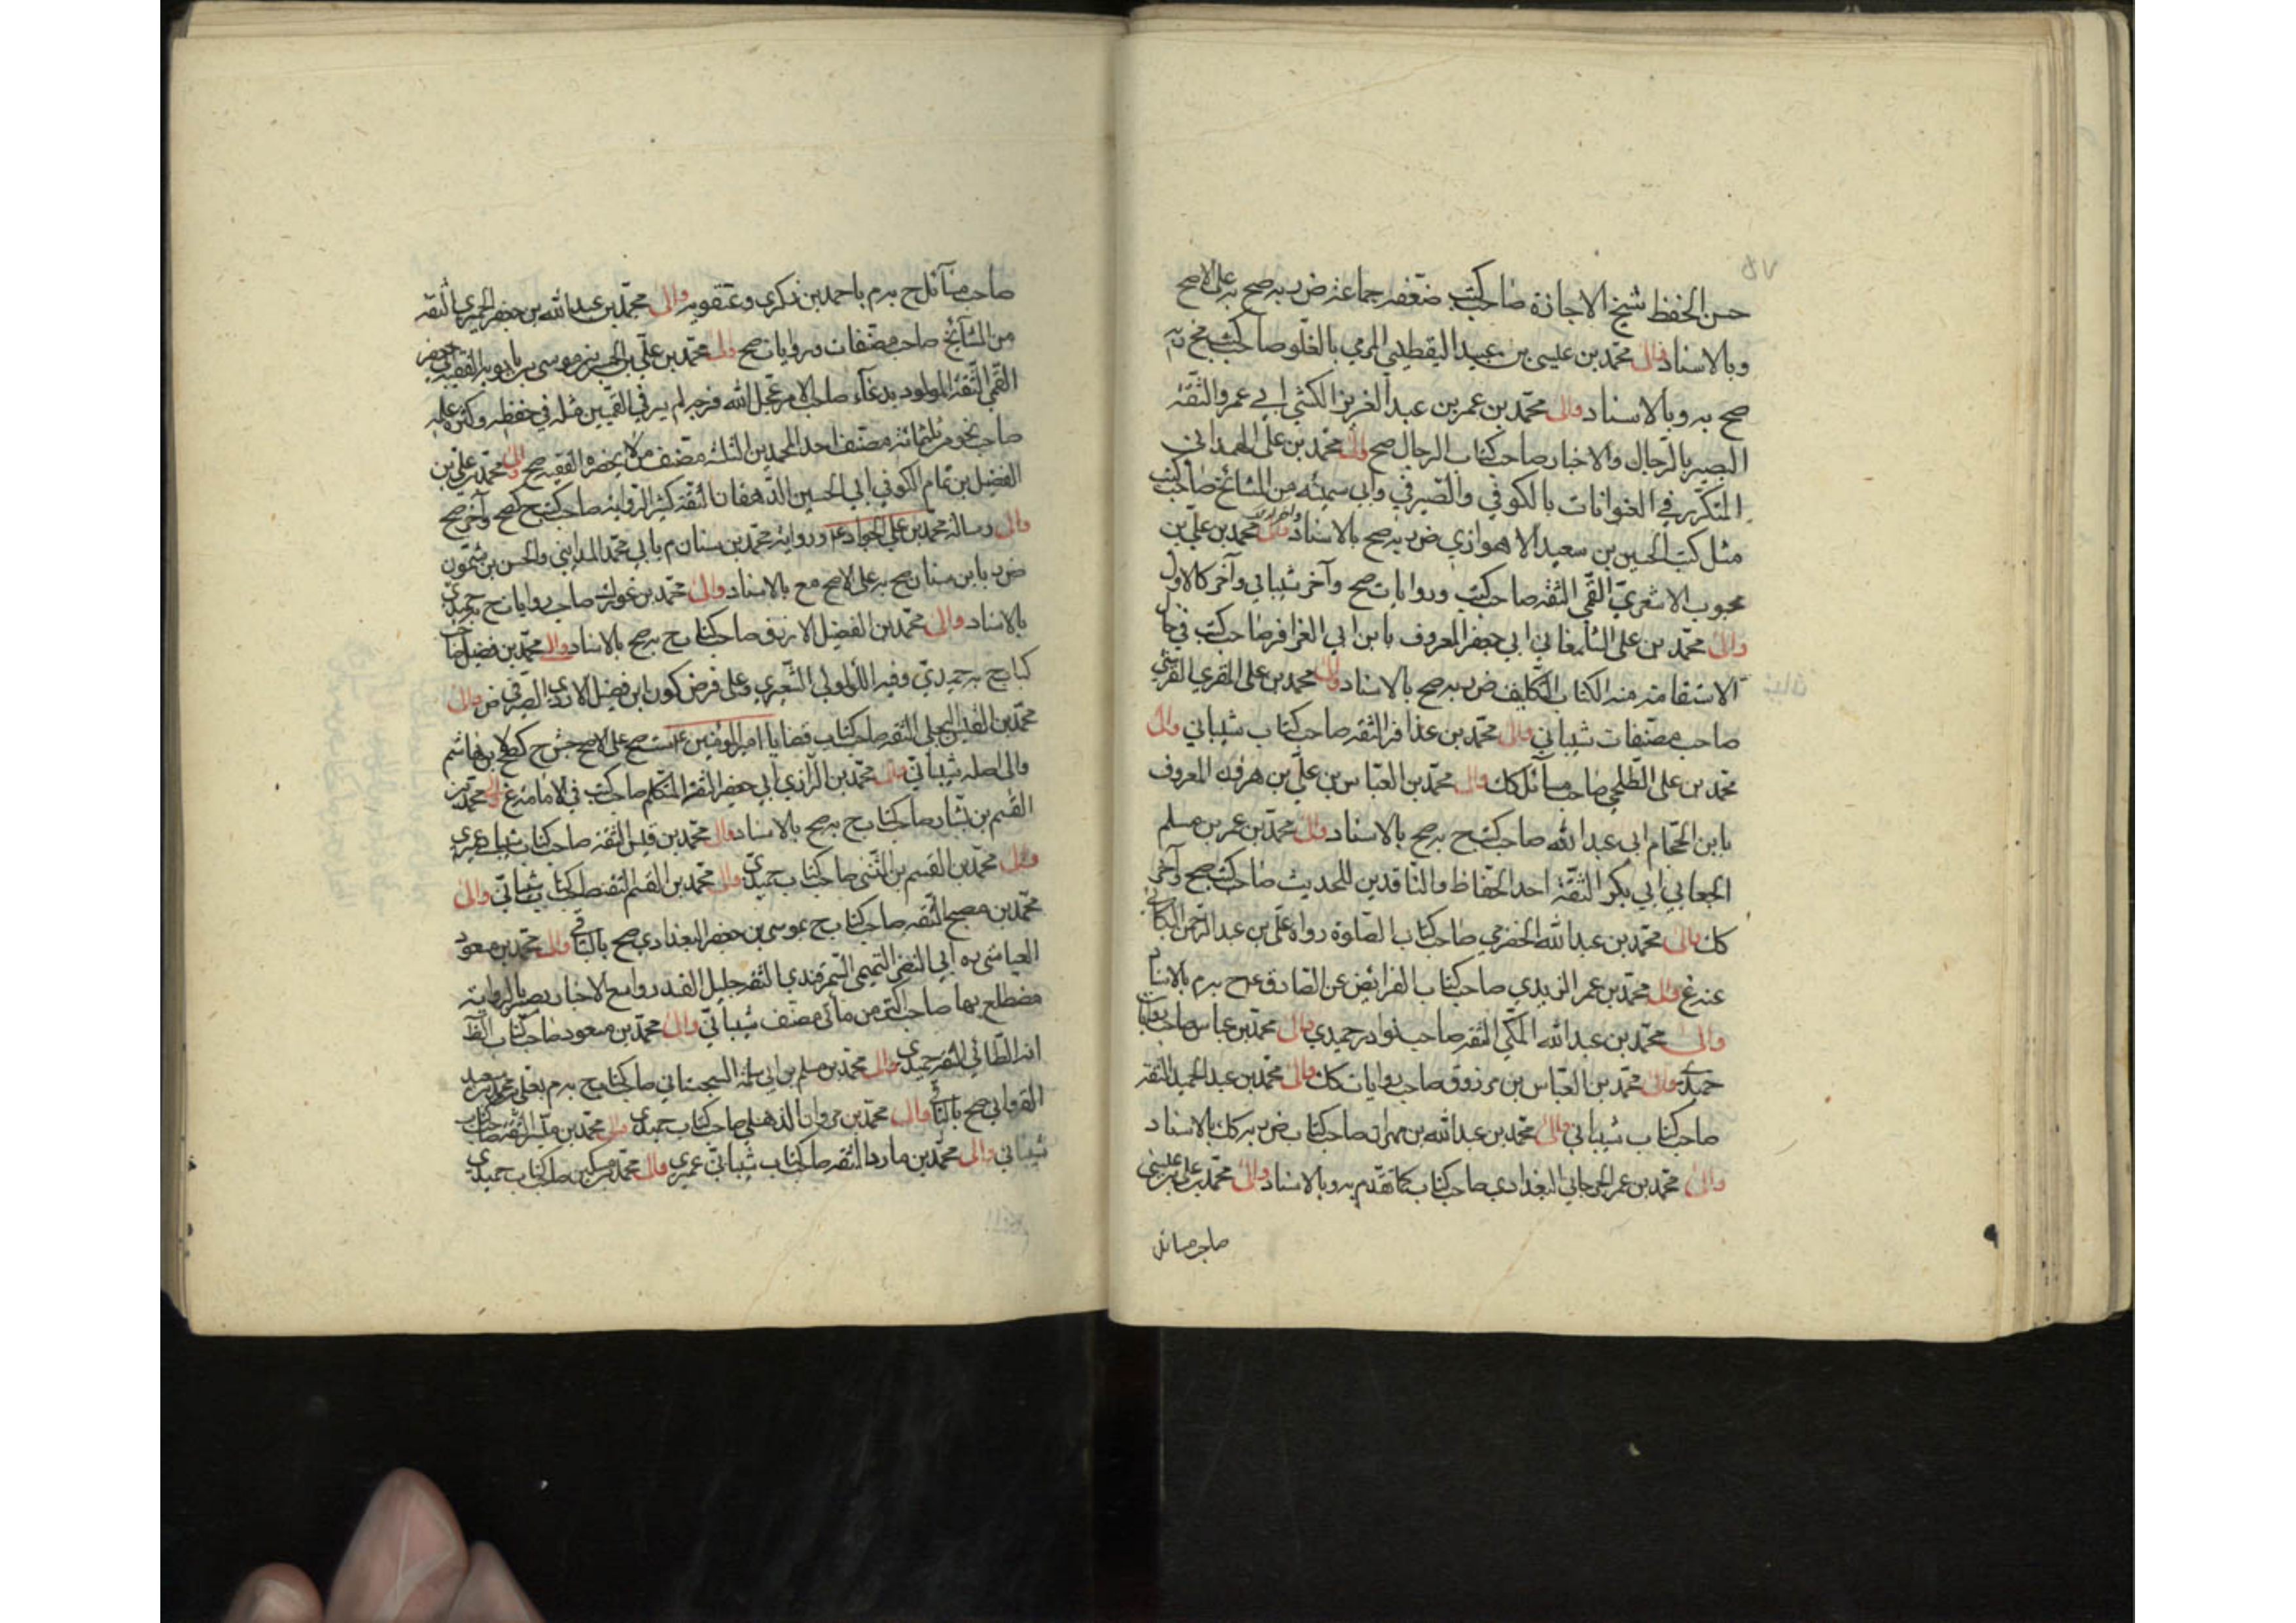 حسن الحفظ شيخ الاجازة صاحب كتب ضعفه جماعة ض به صح به على الاصح
وبالاسناد والى محمد بن عيسى بن عبيد اليقطيني الرمي بالغلو صاحب كتب
صح به وبالاسناد والى محمد بن عمر بن عبد العزيز الكشي ابي عمرو الثقة
البصير بالرجال والاخبار صاحب كتاب الرجال صح والى محمد بن علي الهمداني
المتكرر في العنوانات بالكوفي والصيرفي وابي سمينه من المشائخ صاحب كتب
مثل كتب الحسين بن سعيد الاهوازي ض به صح بالاسناد والى محمد بن علي بن
محبوب الاشعري القمي الثقة صاحب كتب وروايات صح وآخر شيباني وآخر كالاول
والى محمد بن علي الشلمغاني ابي جعفر المعروف بابن ابي العزاقر صاحب كتب في حال
الاستقامة منه الكتاب التكليف ض به صح بالاسناد والى محمد بن علي المقري القرشي
صاحب مصنفات شيباني والى محمد بن عذافر الثقة صاحب كتاب شيباني والى
محمد بن علي الطلحي صاحب مسائل كك والى محمد بن العباس بن علي بن مروان المعروف
بابن الحجام ابي عبد الله صاحب كتب ج به صح بالاسناد والى محمد بن عمر بن مسلم
الجعابي ابي بكر الثقة احد الحفاظ والناقدين للحديث صاحب كتب صح وآخر
كك والى محمد بن عبد الله الحضرمي صاحب كتاب الصلوة رواه علي بن عبد الرحمن البكائي
عنه غ والى محمد بن عمر الزيدي صاحب كتاب الفرائض عن الصادق ع ح به م بالاسناد
والى محمد بن عبد الله المكي الثقة صاحب نوادر حميدي والى محمد بن عباس صاحب روايات
حميدي والى محمد بن العباس بن مرزوق صاحب روايات كك والى محمد بن عبد الحميد الثقة
صاحب كتاب شيباني والى محمد بن عبد الله بن مهران صاحب كتاب ض به كك بالاسناد
والى محمد بن عمر الجرجاني البغدادي صاحب كتاب كما تقدم به وبالاسناد والى محمد بن علي بن عيسى
صاحب مسائل
صاحب مسائل ح به م باحمد بن ذكري وعتقويه والى محمد بن عبد الله بن جعفر الحميري الثقة
من المشائخ صاحب مصنفات وروايات صح والى محمد بن علي بن الحسين بن موسى بن بابويه الفقيه ابي جعفر
القمي الثقة المولود بدعاء صاحب الامر عجل الله فرجه لم ير في القميين مثله في حفظه وكثرة علمه
صاحب نحو من ثلثمائة مصنف احد المحمدين الثلثة مصنف من لا يحضره الفقيه صح والى محمد بن علي بن
الفضل بن تمام الكوفي ابي الحسين الدهقان الثقة كثير الرواية صاحب كتب ج كصح وآخر صح
والى رسالة محمد بن علي الجواد ع ورواية محمد بن سنان م بابي محمد المدايني والحسن بن شمون
ض به بابن سنان صح به على الاصح مع بالاسناد والى محمد بن غورك صاحب روايات ح حميدي
بالاسناد والى محمد بن الفضيل الازرق صاحب كتاب ج به صح بالاسناد والى محمد بن فضيل صاحب
كتاب ج به حميدي وفيه اللؤلؤي الشعيري وعلى فرض كون ابن فضيل الازدي الصيرفي ض والى
محمد بن القيس البجلي الثقة صاحب كتاب قضايا امير المؤمنين ع صح على الاصح كصح بن هاشم
والى اصله شيباني والى محمد بن الرازي ابي جعفر الثقة المتكلم صاحب كتب في الامامة غ والى محمد بن
القسم بن بشار صاحب كتاب ج به صح بالاسناد والى محمد بن قيس الثقة صاحب كتاب شيباني حميري
والى محمد بن القسم بن المثنى صاحب كتاب حميدي والى محمد بن القسم الثقة صاحب كتاب شيباني والى
محمد بن مصبح الثقة صاحب كتاب ج بموسى بن جعفر البغدادي صح بالثاني والى محمد بن مسعود
العياشي ره ابي النضر التميمي السمرقندي الثقة جليل القدر واسع الاخبار بصير بالرواية
مضطلع بها صاحب اكثر من مأتي مصنف شيباني والى محمد بن مسعود صاحب كتاب الظ
انه الطائي الثقة حميدي والى محمد بن مسلم بن ابي سلمة السجستاني صاحب كتاب ج به م بعلي بن محمد بن سعيد
القرواني صح بالثاني والى محمد بن مروان الذهلي صاحب كتاب حميدي والى محمد بن ميسر الثقة صاحب كتاب
شيباني والى محمد بن مارد الثقة صاحب كتاب شيباني عمري والى محمد بن مسكين صاحب كتاب حميدي